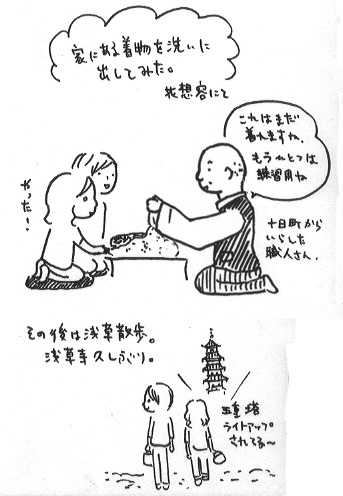 家にある着物を洗いに
出してみた。
我想容にて
これはまだ
着れますね、
もうひとつは
練習用かな
やったー!
十日町から
いらした
職人さん。
その後は浅草散歩。
浅草寺久しぶり。
五重塔
ライトアップ
されてる〜